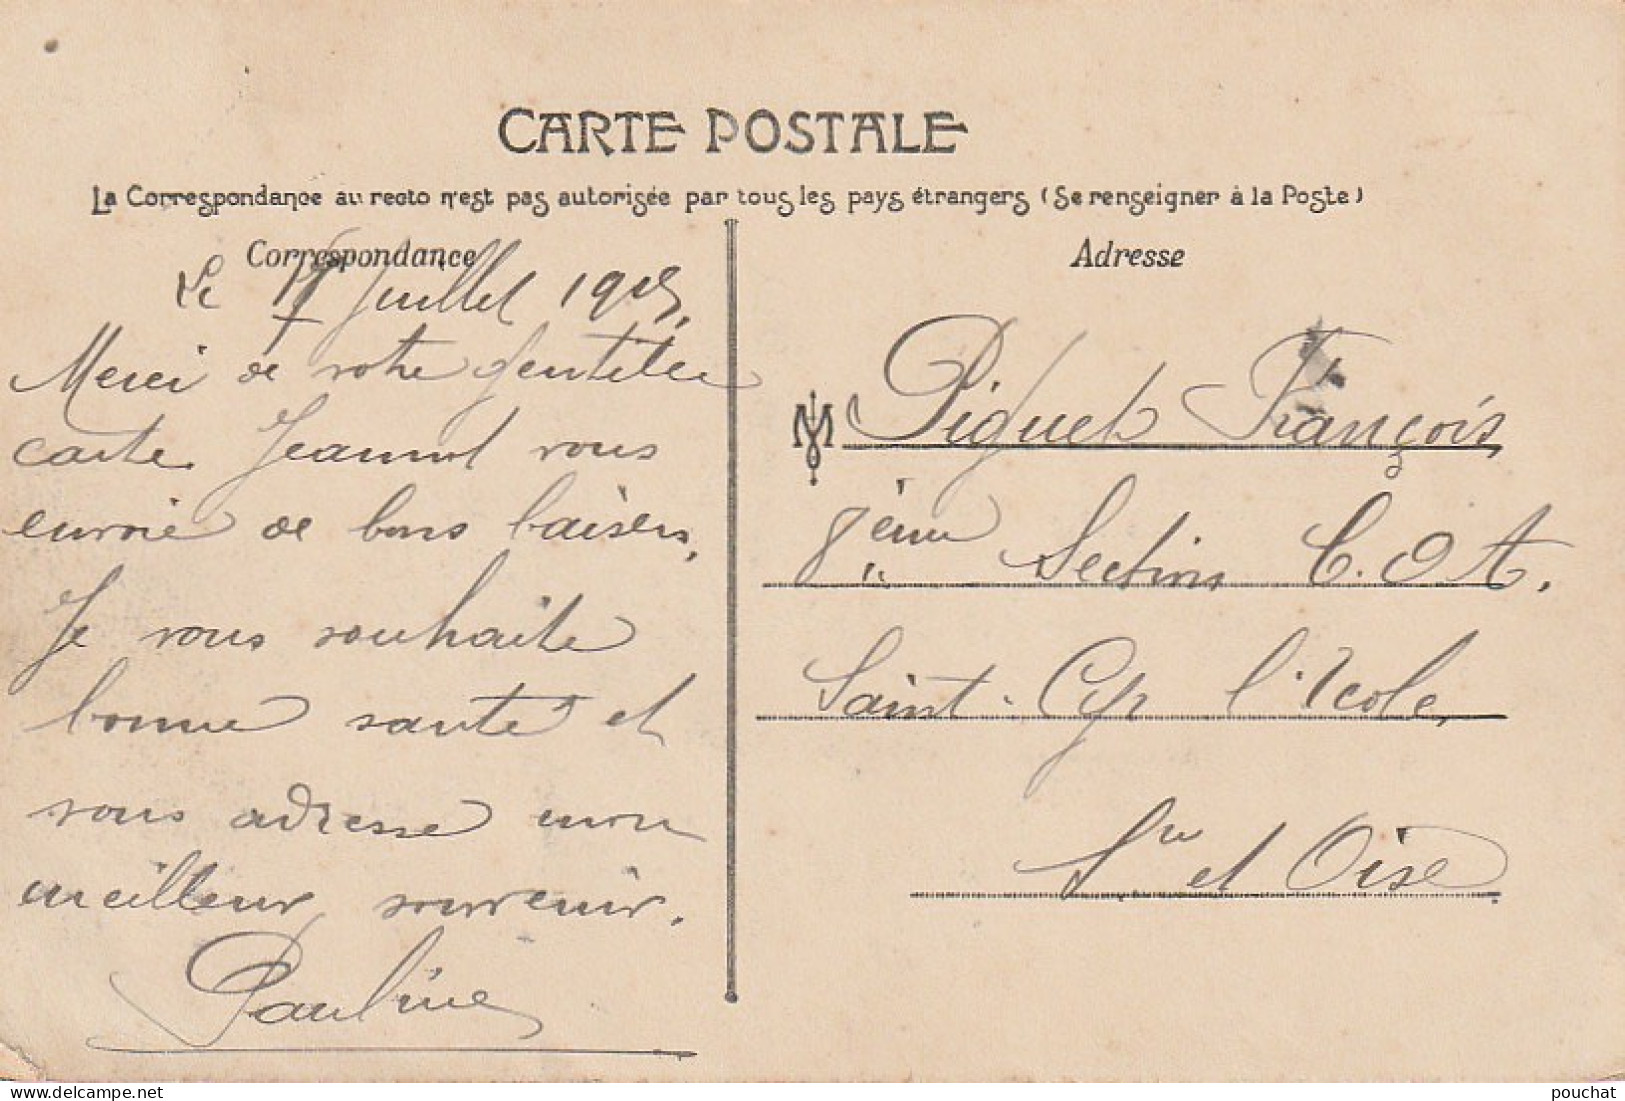 CARTE POSTALE
La Correspondance au recto n'est pas autorisée par tous les pays étrangers (Se renseigner à la Poste)
Correspondance
Le 17 Juillet 1905.
Merci de votre gentille
carte. Jeannot vous
envoie de bons baisers.
Je vous souhaite
bonne santé et
vous adresse mon
meilleur souvenir.
Pauline
Adresse
Piguet François
8ème Section C.O.A.
Saint-Cyr l'Ecole
Sne et Oise
delcampe.net
pouchat